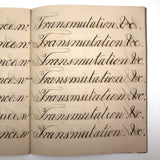 ance.n. Transmutation.&c.
ance.n. Transmutation.&c.
ance.n. Transmutation.&c.
ance.n. Transmutation.&c.
ance.n. Transmutation.&c.
ance.n. Transmutation.&c.
ance.n. Transmutation.&c.